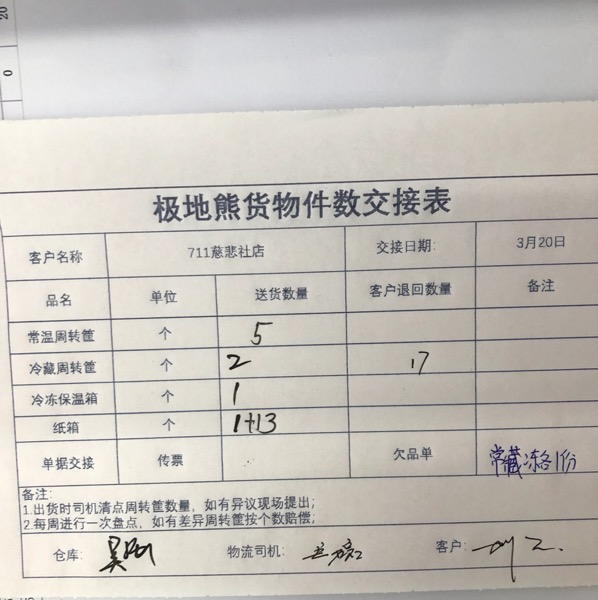 20
0
极地熊货物件数交接表
客户名称 711慈悲社店 交接日期: 3月20日
品名 单位 送货数量 客户退回数量 备注
常温周转筐 个 5
冷藏周转筐 个 2 17
冷冻保温箱 个 1
纸箱 个 1+13
单据交接 传票 欠品单 常藏冻各1份
备注:
1.出货时司机清点周转筐数量，如有异议现场提出;
2.每周进行一次盘点，如有差异周转筐按个数赔偿;
仓库: 物流司机: 客户: